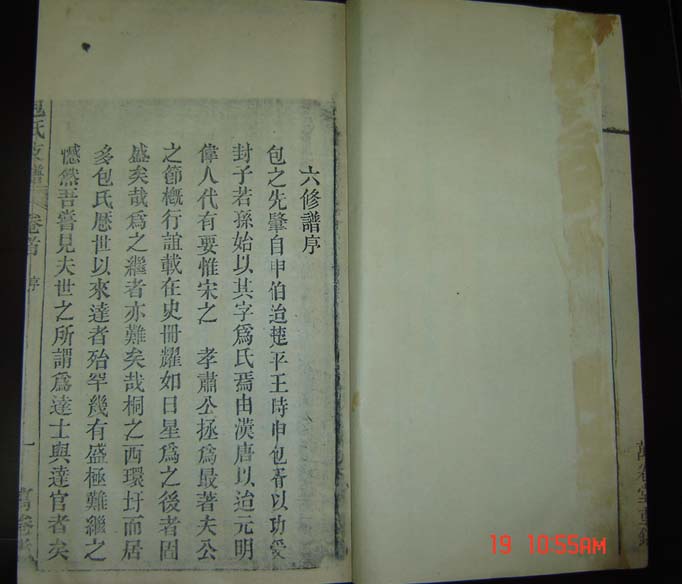 六修譜序
包之先肇自申伯迨楚平王時申包胥以功受
封子若孫始以其字爲氏焉由漢唐以迨元明
偉人代有要惟宋之 孝肅公拯爲最著夫公
之節概行誼載在史冊耀如日星爲之後者固
盛矣哉爲之繼者亦難矣哉桐之西環圩而居
多包氏歷世以來達者殆罕幾有盛極難繼之
憾然吾嘗見夫世之所謂爲達士與達官者矣
包氏支譜 卷首 序 一
19 10:55AM